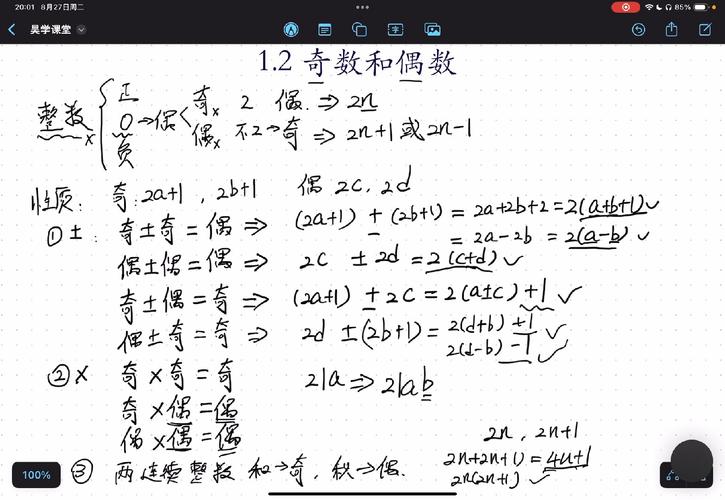 20:01 8月27日周二
85%
吴学课堂
1.2 奇数和偶数
整数 { 正 0 负 → 偶 < 奇 2 偶 ⇒ 2n
偶 不2→奇 ⇒ 2n+1或2n-1
性质: 奇:2a+1, 2b+1 偶 2c, 2d
① ±: 奇±奇=偶 ⇒ (2a+1) + (2b+1) = 2a+2b+2=2(a+b+1)✓
= 2a-2b = 2(a-b) ✓
偶±偶=偶 ⇒ 2c ± 2d = 2(c+d) ✓
奇±偶=奇 ⇒ (2a+1) ± 2c = 2(a±c)+1 ✓
偶±奇=奇 ⇒ 2d ±(2b+1)= 2(d+b)+1 ✓
2(d-b)-1 ✓
② × 奇×奇=奇 2|a ⇒ 2|ab
奇×偶=偶
偶×偶=偶
2n, 2n+1
③ 两连续整数 和→奇, 积→偶. 2n+2n+1)=4n+1
2n(2n+1) ✓
100%